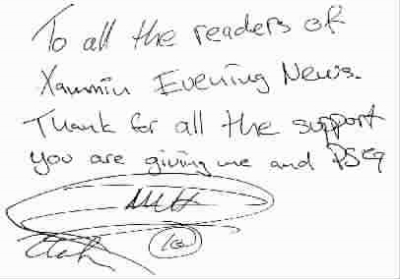 To all the readers of
Xanmin Evening News.
Thank for all the support
you are giving me and PSG